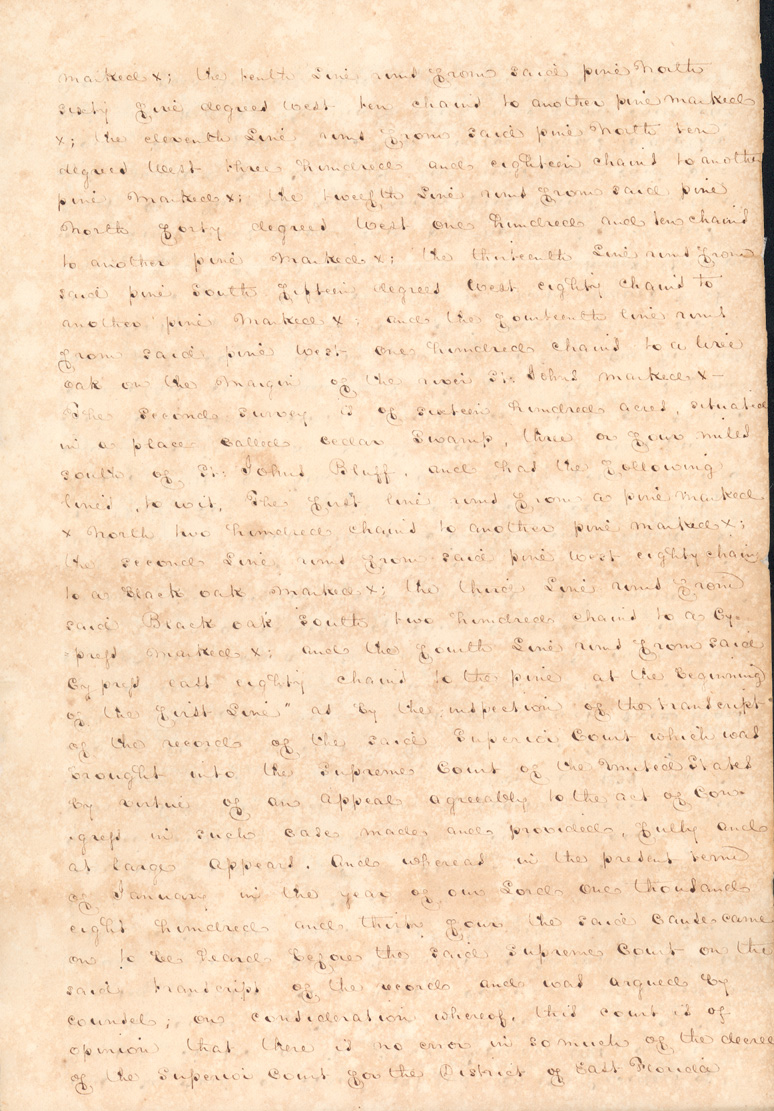 marked x; the tenth Line runs From said pine North
sixty Five degrees West ten chains to another pine marked
x; the eleventh Line runs From said pine North ten
degrees West three hundred and eighteen chains to another
pine Marked x; the twelfth Line runs From said pine
North Forty degrees West one hundred and ten chains
to another pine Marked x; the thirteenth Line runs From
said pine South Fifteen degrees West eighty chains to
another pine Marked x; and the Fourteenth line runs
From said pine West one hundred chains to a live
oak on the Margin of the river St: Johns marked x—
The second survey is of sixteen hundred acres, situated
in a place called cedar Swamp, three or Four miles
south of St: Johns Bluff, and has the Following
lines, to wit, The First line runs From a pine marked
x North two hundred chains to another pine marked x;
the second Line runs From said pine West eighty chains
to a Black oak Marked x; the third Line runs From
said Black oak South two hundred chains to a Cy-
press Marked x; and the Fourth Line runs From said
Cypress east eighty chains to the pine at the beginning
of the First Line" as by the inspection of the transcript
of the record of the said Superior Court which was
brought into the Supreme Court of the United States
by virtue of an Appeal agreeably to the act of Con-
gress in such case made and provided, Fully and
at Large Appears. And whereas in the present term
of January in the year of our Lord one thousand
eight hundred and thirty Four the said Cause came
on to be Heard before the said Supreme Court on the
said transcript of the record and was argued by
counsel; on consideration whereof, this court is of
opinion that there is no error in so much of the decree
of the Superior Court for the District of East Florida